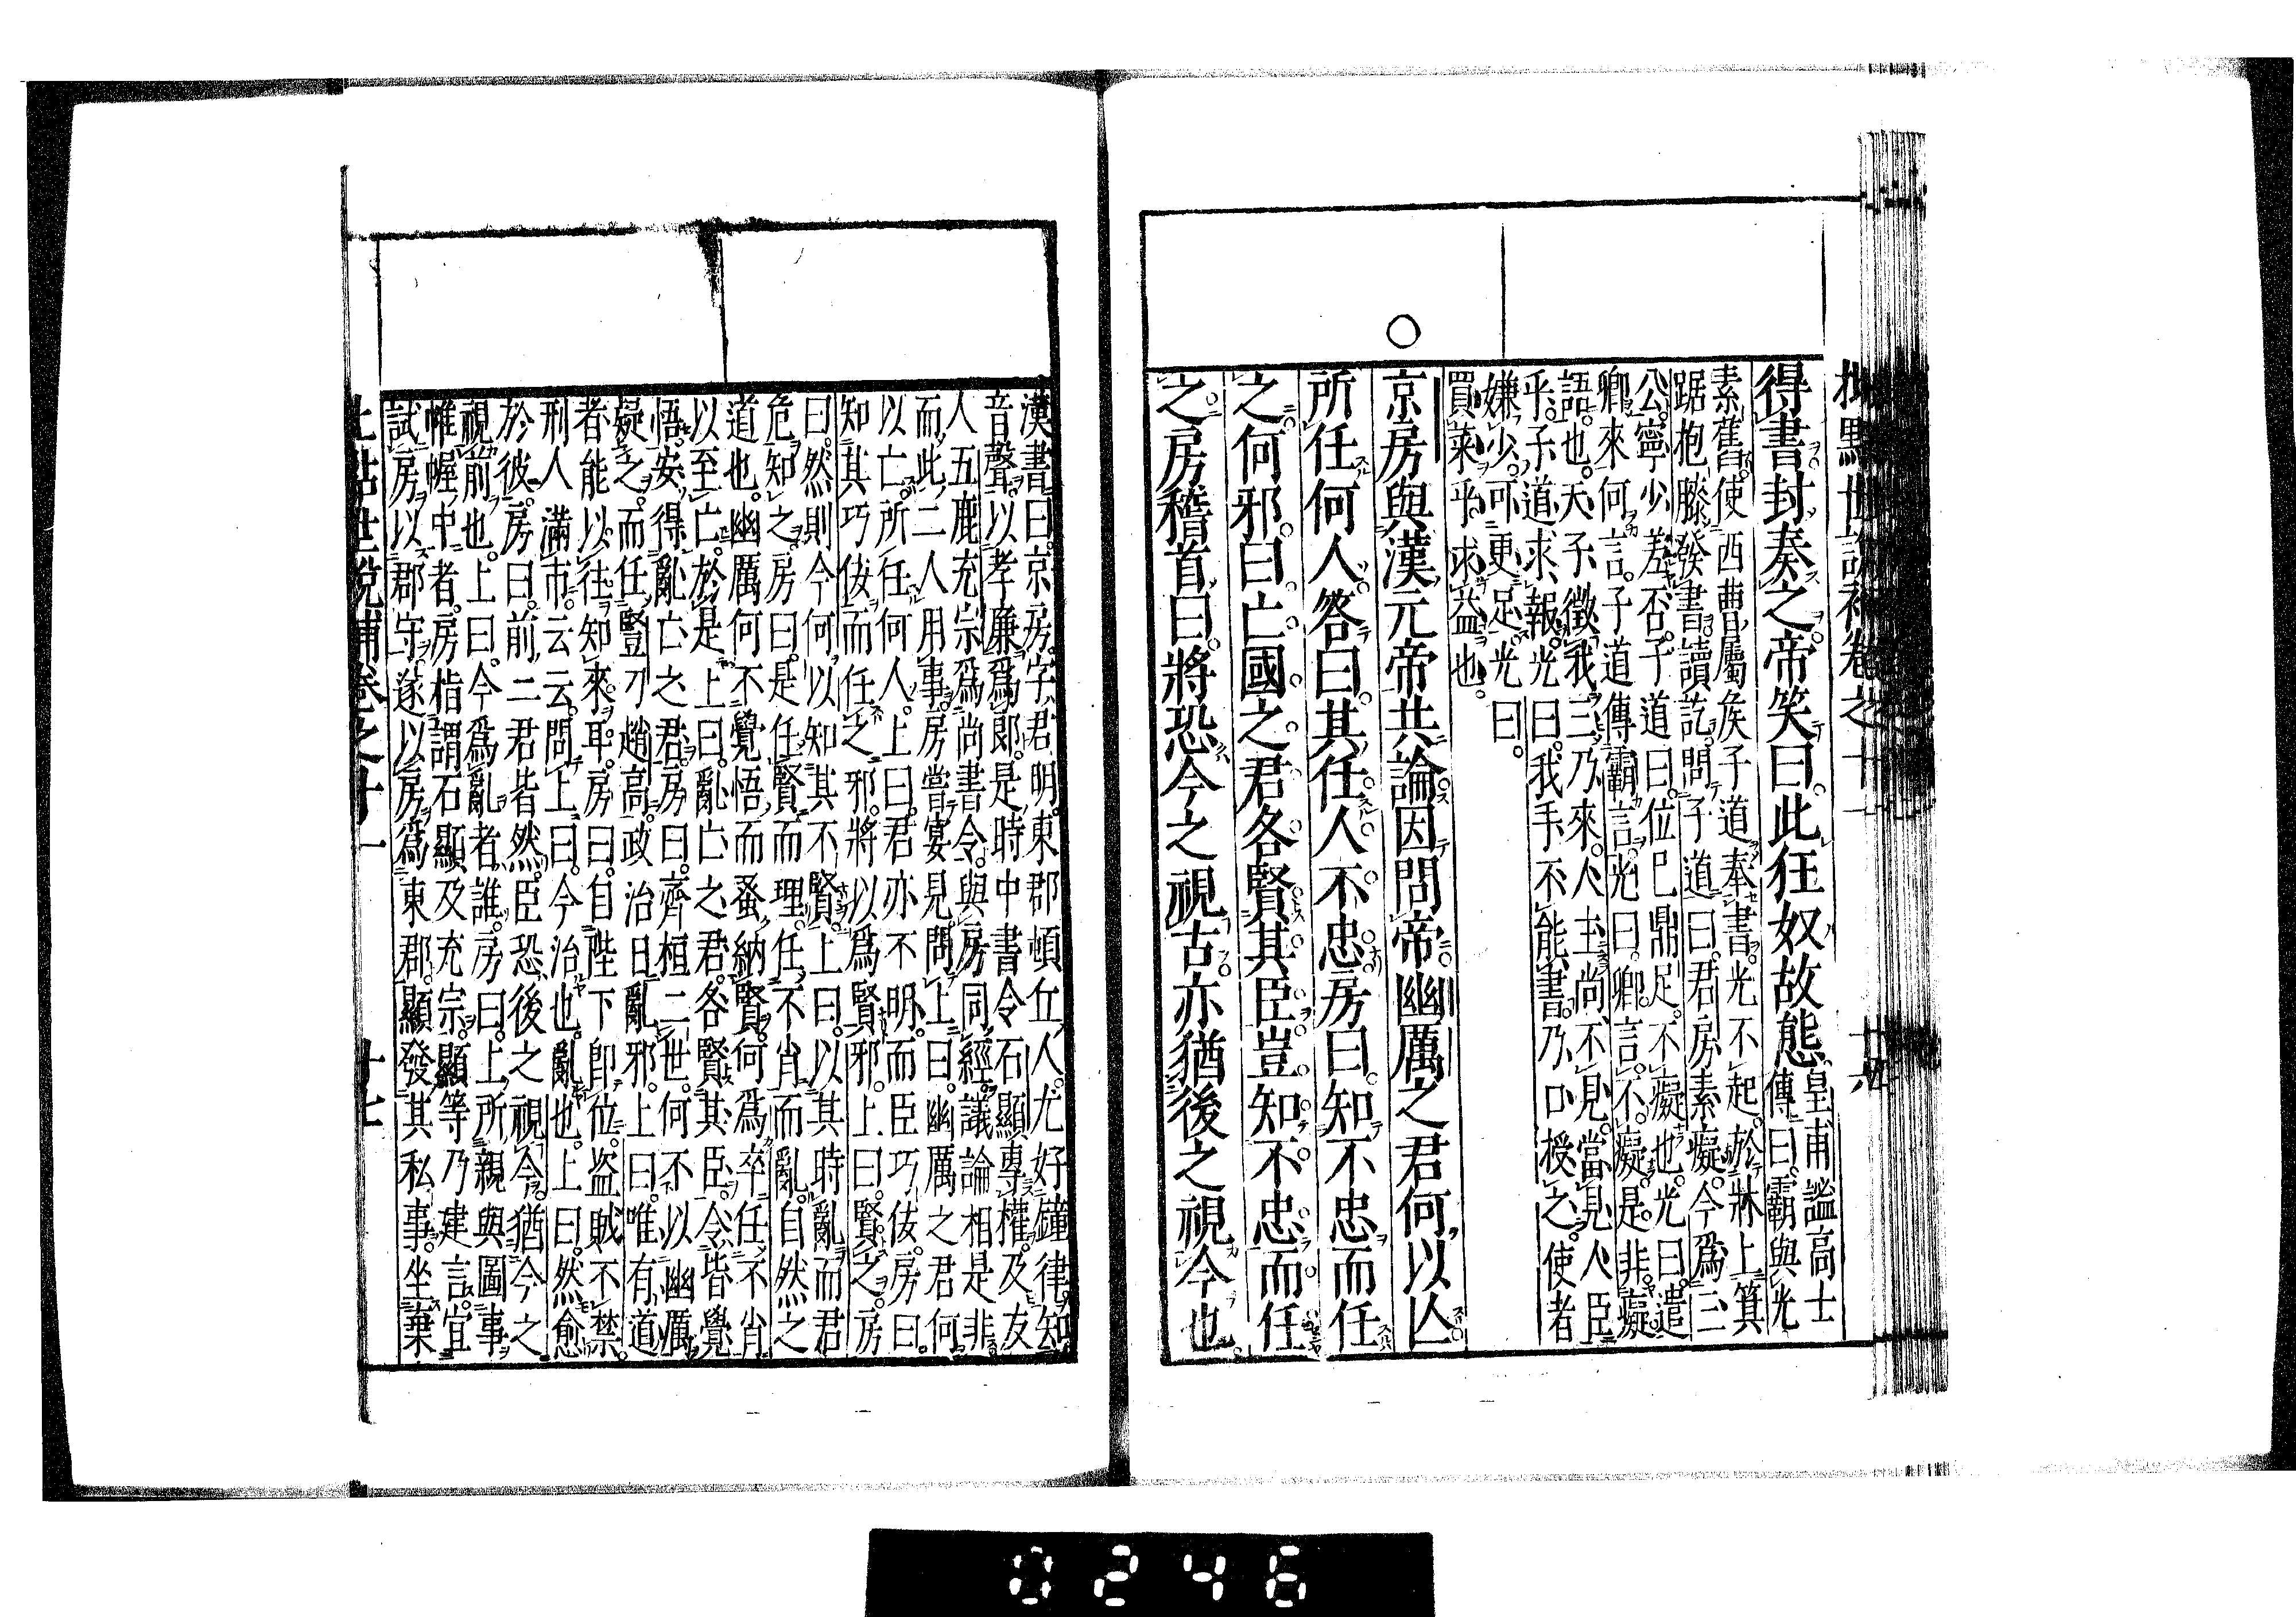 批點世說補卷之十一 十六
得書封奏之帝笑曰此狂奴故態皇甫謐高士
傳曰霸與光
素舊使西曹屬矦子道奉書光不起於牀上箕
踞抱膝發書讀訖問子道曰君房素癡今爲三
公寧少差否子道曰位已鼎足不癡也光曰遣
卿來何言子道傳霸言光曰卿言不癡是非癡
語也天子徵我三乃來人主尚不見當見人臣
乎子道求報光曰我手不能書乃口授之使者
嫌少可更足光曰
買菜乎求益也
京房與漢元帝共論因問帝幽厲之君何以亾
所任何人答曰其任人不忠房曰知不忠而任
之何邪曰亡國之君各賢其臣豈知不忠而任
之房稽首曰將恐今之視古亦猶後之視今也
漢書曰京房字君明東郡頓丘人尤好鐘律知
音聲以孝廉爲郎是時中書令石顯專權及友
人五鹿充宗爲尚書令與房同經議論相是非
而此二人用事房嘗宴見問上曰幽厲之君何
以亡所任何人上曰君亦不明而臣巧佞房曰
知其巧佞而任之邪將以爲賢邪上曰賢之房
曰然則今何以知其不賢上曰以其時亂而君
危知之房曰是任賢而理任不肖而亂自然之
道也幽厲何不覺悟而蚤納賢何爲卒任不肖
以至亡於是上曰亂亡之君各賢其臣令皆覺
悟安得亂亡之君房曰齊桓二世何不以幽厲
疑之而任豎刁趙高政治日亂邪上曰唯有道
者能以往知來耳房曰自陛下卽位盜賊不禁
刑人滿市云云問上曰今治也亂也上曰然愈
於彼房曰前二君皆然臣恐後之視今猶今之
視前也上曰今爲亂者誰房曰上所親與圖事
帷幄中者房指謂石顯及充宗顯等乃建言宜
試房以郡守遂以房爲東郡顯發其私事坐棄
批點世說補卷之十一 十七
0246